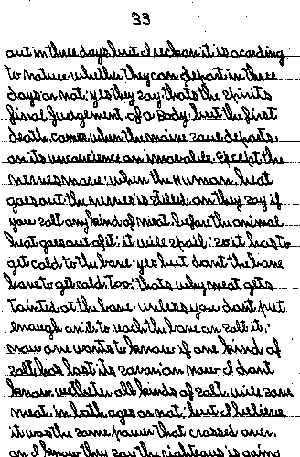 33
out in three days but I reckon it is acording
to nature whether they can depart in three
days or not; yes they say; thats the spirits
final judgement of a Body; but the first
death, comes when the maine save departs
as its unconscience an immovable. Except the
nerves move; when the Human heat
goes out the nerves is stilled, an they say if
you salt any kind of meat before the animal
heat goes out of it; it will spoil; so it has to
get cold to the bone yes but dont the bone
have to get cold, too; thats why meat gets
tainted at the bone unless you dont put
enough on it to reach the bone an salt it.
now we wants to know if one kind of
salt has lost its savor an now I dont
know whether all kinds of salt will save
meat in both ages or not; but I believe
it was the same power that crossed over
an I know they say the righteous is going